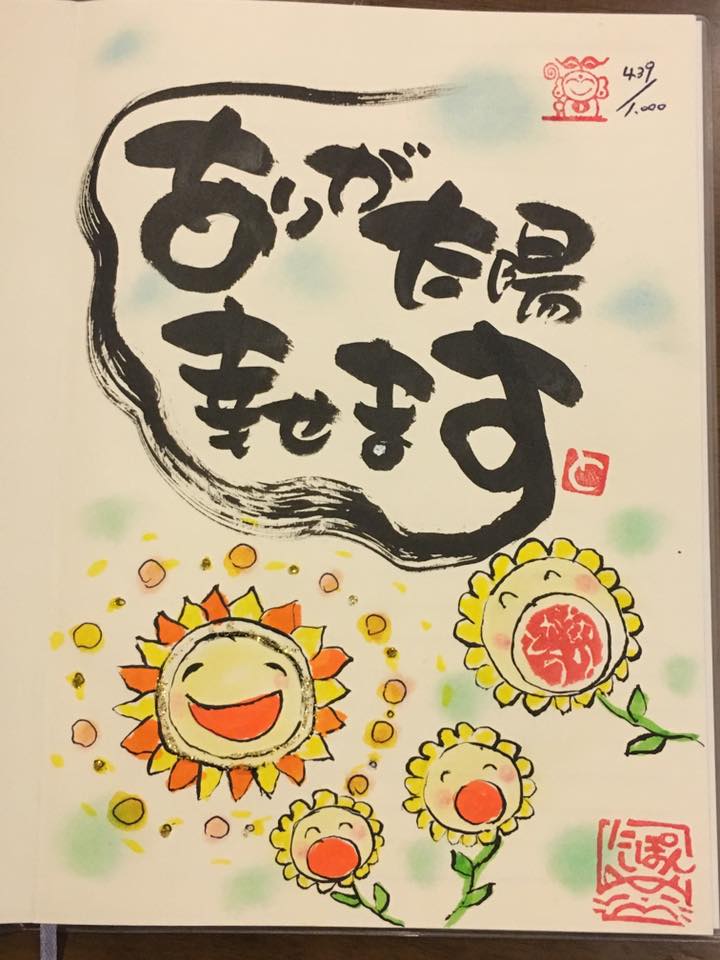 439/1.000
ありが
太陽
幸せます
と